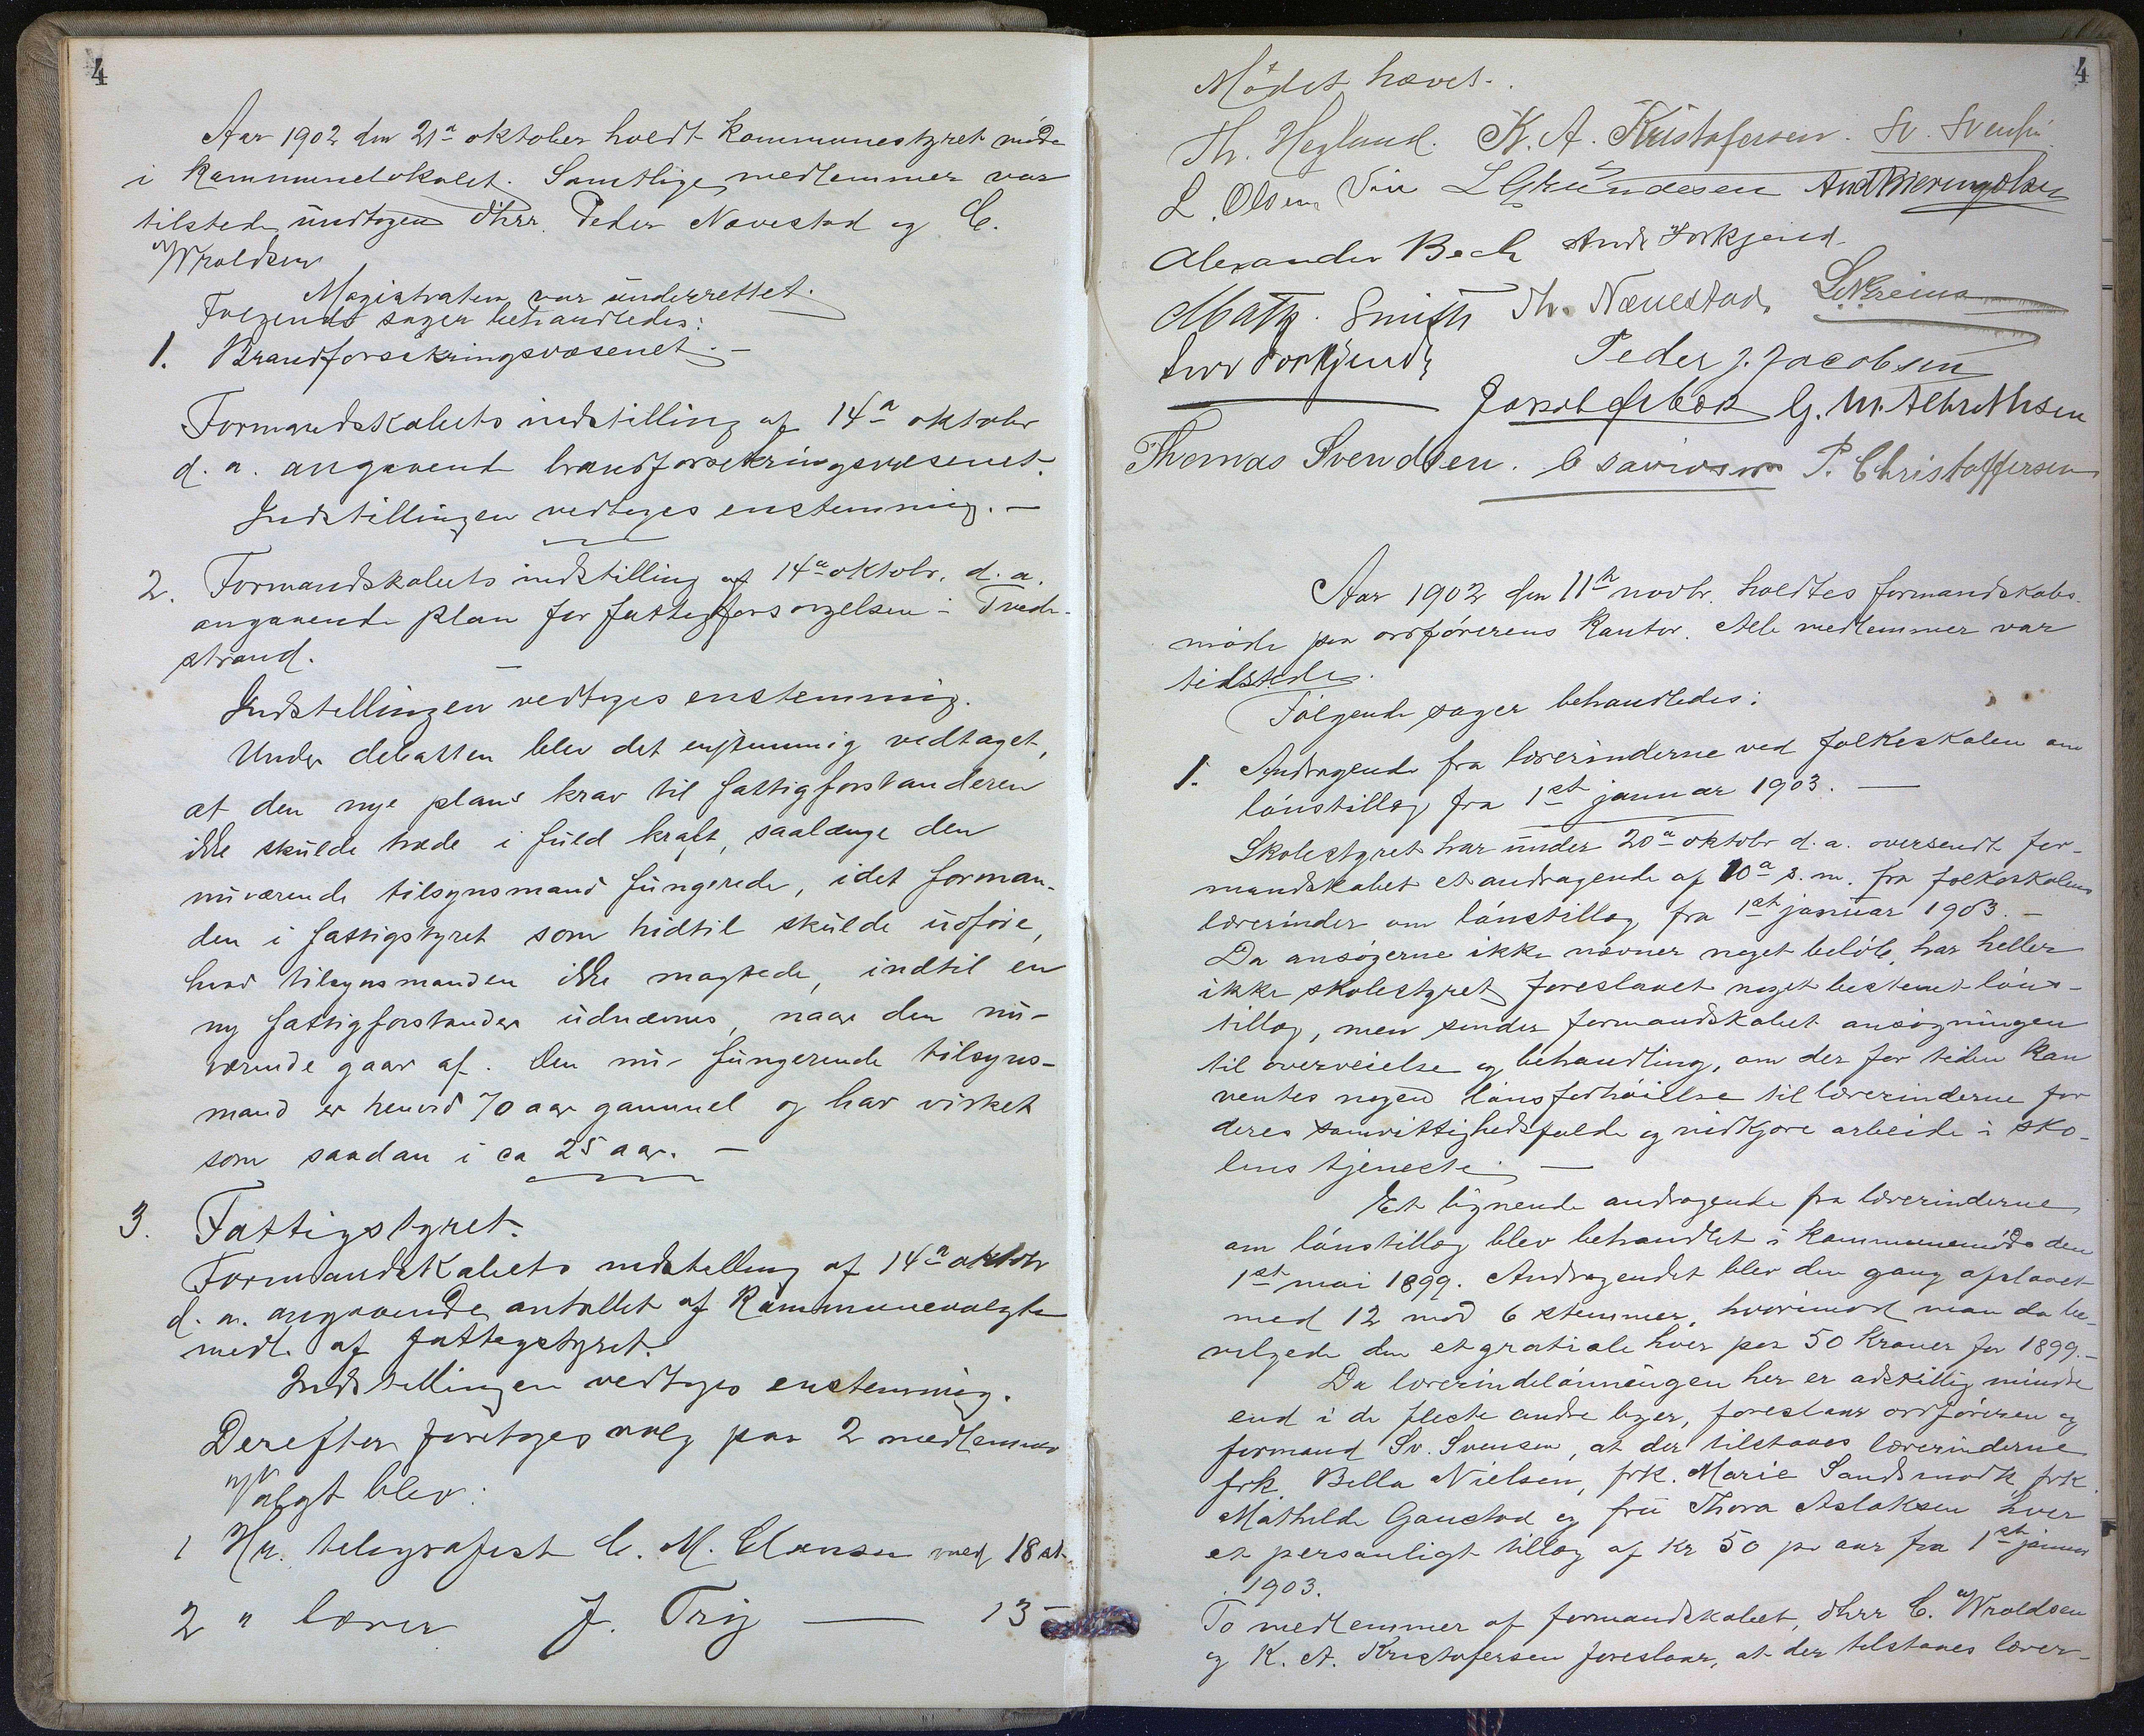 4
Aar 1902 den 21de oktober holdt kommunestyret møde
i kommunelokalet. Samtlige medlemmer var
tilstede, undtagen dhrr. Peder Nævestad og C.
Wroldsen
Magistraten var underrettet.
Følgende sager behandledes:
1. Brandforsikringsvæsenet. —
Formandskabets indstilling af 14de oktober
d. a. angaaende brandforsikringsvæsenet.
Indstillingen vedtoges enstemmig. —
2. Formandskabets indstilling af 14de oktobr. d. a.
angaaende plan for fattigforsorgelsen i Tvede-
strand. —
Indstillingen vedtoges enstemmig.
Under debatten blev det enstemmig vedtaget,
at den nye plans krav til fattigforstanderen
ikke skulde træde i fuld kraft, saalænge den
nuværende tilsynsmand fungerede, idet forman-
den i fattigstyret som hidtil skulde udføre,
hvad tilsynsmanden ikke magtede, indtil en
ny fattigforstander udnævnes, naar den nu-
værende gaar af. Den nu fungerende tilsyns-
mand er henved 70 aar gammel og har virket
som saadan i ca 25 aar. —
3. Fattigstyret.
Formandskabets indstilling af 14de oktobr
d. a. angaaende antallet af kommunevalgte
medl. af fattigstyret.
Indstillingen vedtoges enstemmig.
Derefter foretoges valg paa 2 medlemmer
Valgt blev:
1 Hr. telegrafist C. M. Clausen med 18 st.
2 " lærer J. Trip — 13 —
4
Mødet hævet.
Th. Hegland. K. A. Kristofersen. Sv. Svensen
L. Olsen Vin L Gkundesen And Bieringolsen
Alexander Bech Andr Torkjend.
Math. Smith Th. Nævestad
Peder J. Jacobsen
G. M. Albrethsen
Thomas Svendsen. P. Christoffersen
Aar 1902 den 11te novbr. holdtes formandskabs-
møde paa ordførerens kontor. Alle medlemmer var
tilstede.
Følgende sager behandledes:
1. Andragende fra lærerinderne ved folkeskolen om
lønstillæg fra 1st januar 1903. —
Skolestyret har under 20de oktobr d. a. oversendt for-
mandskabet et andragende af 10de s. m. fra folkeskolens
lærerinder om lønstillæg fra 1st januar 1903. —
Da ansøgerne ikke nævner noget beløb, har heller
ikke skolestyret foreslaaet noget bestemt løns-
tillæg, men sender formandskabet ansøgningen
til overveielse og behandling, om der for tiden kan
ventes nogen lønsforhøielse til lærerinderne for
deres samvittighedsfulde og nidkjære arbeide i sko-
lens tjeneste. —
Et lignende andragende fra lærerinderne
om lønstillæg blev behandlet i kommunemøde den
1st mai 1899. Andragendet blev den gang afslaaet
med 12 mod 6 stemmer, hvorimod man da be-
vilgede dem et gratiale hver paa 50 kroner for 1899. —
Da lærerindelønningen her er adskillig mindre
end i de fleste andre byer, foreslaar ordføreren og
formand Sv. Svensen, at der tilstaaes lærerinderne
frk. Bella Nielsen, frk. Marie Sandsmark, frk.
Mathilde Gaustad og fru Thora Aslaksen hver
et personligt tillæg af kr 50 pr aar fra 1st januar
1903.
To medlemmer af formandskabet, dhrr C. Wroldsen
og K. A. Kristofersen foreslaar, at der tilstaaes lærer-